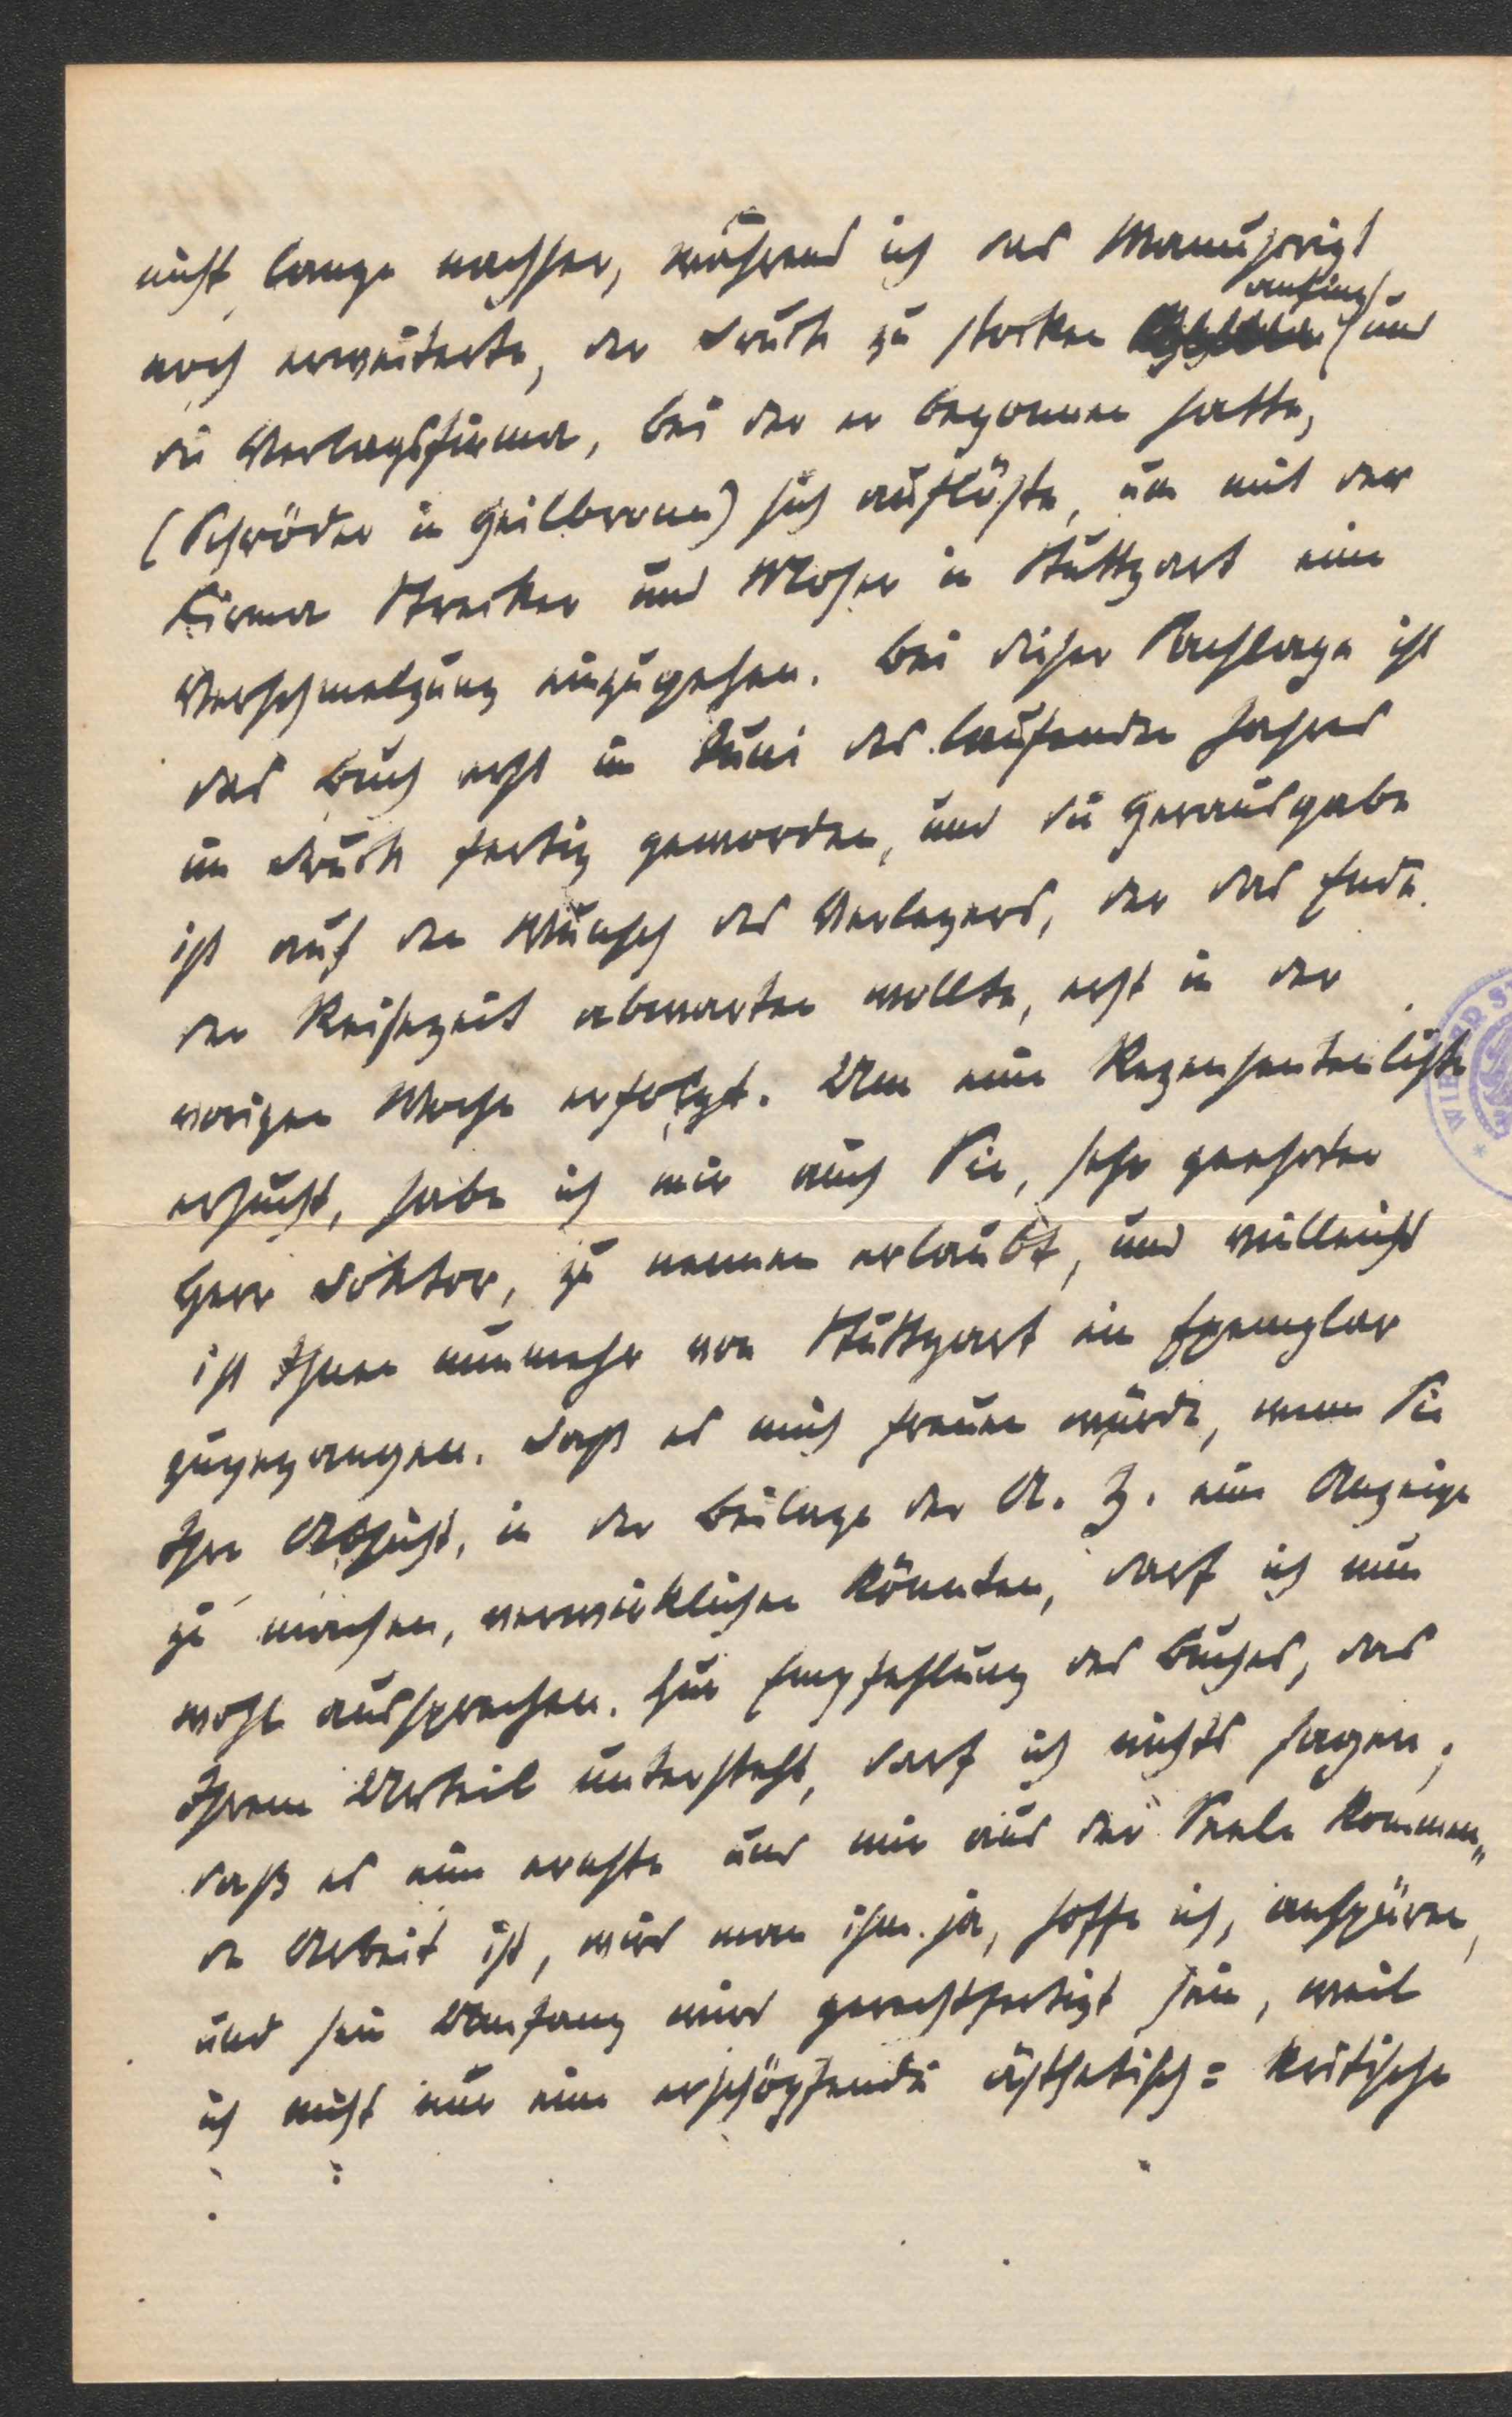 nicht lange nachher, während ich das Manuscript
noch erweiterte, der Druck zu stocken anfing und
die Verlagsfirma, bei der er begonnen hatte,
(Schröder in Heilbronn) sich auflöste, um mit der
Firma Strecker und Moser in Stuttgart eine
Verschmelzung einzugehen. Bei dieser Sachlage ist
das Buch erst im Juni des laufenden Jahres
im Druck fertig geworden, und die Herausgabe
ist auf den Wunsch des Verlegers, der das Ende
der Reisezeit abwarten wollte, erst in der
vorigen Woche erfolgt. Um eine Rezensentenliste
ersucht, habe ich mir auch Sie, sehr geehrter
Herr Doktor, zu nennen erlaubt, und vielleicht
ist Ihnen nunmehr von Stuttgart ein Exemplar
zugegangen. Daß es mich freuen würde, wenn Sie
Ihre Absicht, in der Beilage der A. Z. eine Anzeige
zu machen, verwirklichen könnten, darf ich nun
wohl aussprechen. Zur Empfehlung des Buches, das
Ihrem Urteil untersteht, darf ich nichts sagen;
daß es eine ernste und mir aus der Seele kommen„
de Arbeit ist, wird man ihm ja, hoffe ich, anspüren,
und sein Umfang wird gerechtfertigt sein, weil
ich nicht nur eine erschöpfende ästhetisch= kritische